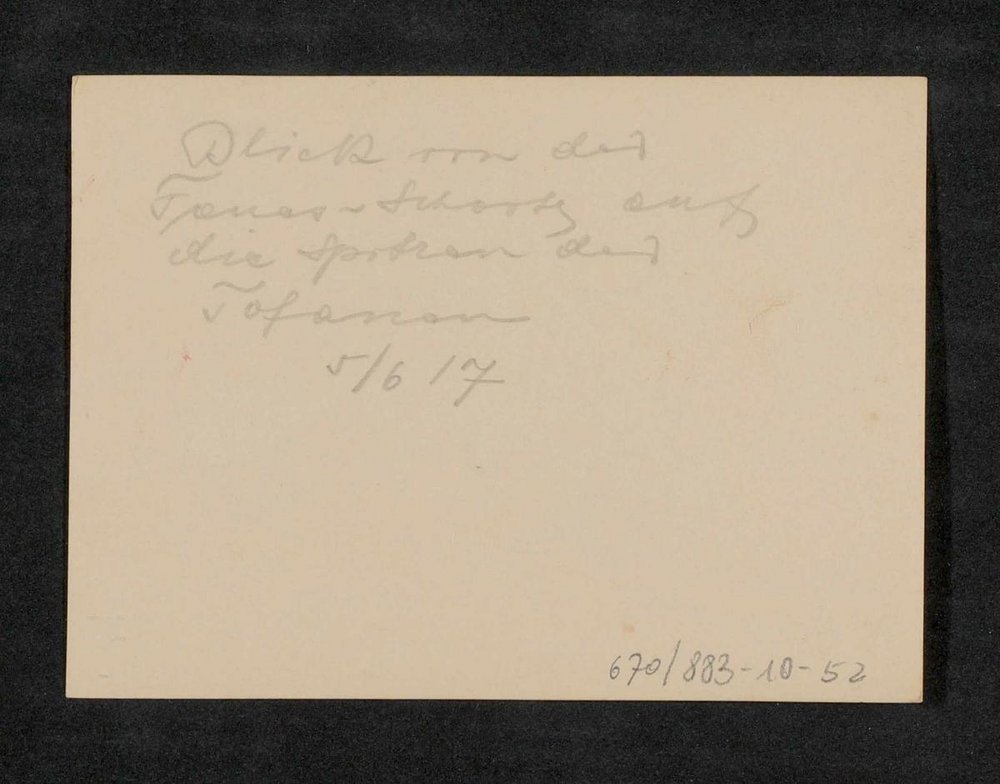 Blick von der
Fanes-Scharte auf
die Spitzen der
Tofanen
5/6 17
670/883-10-52